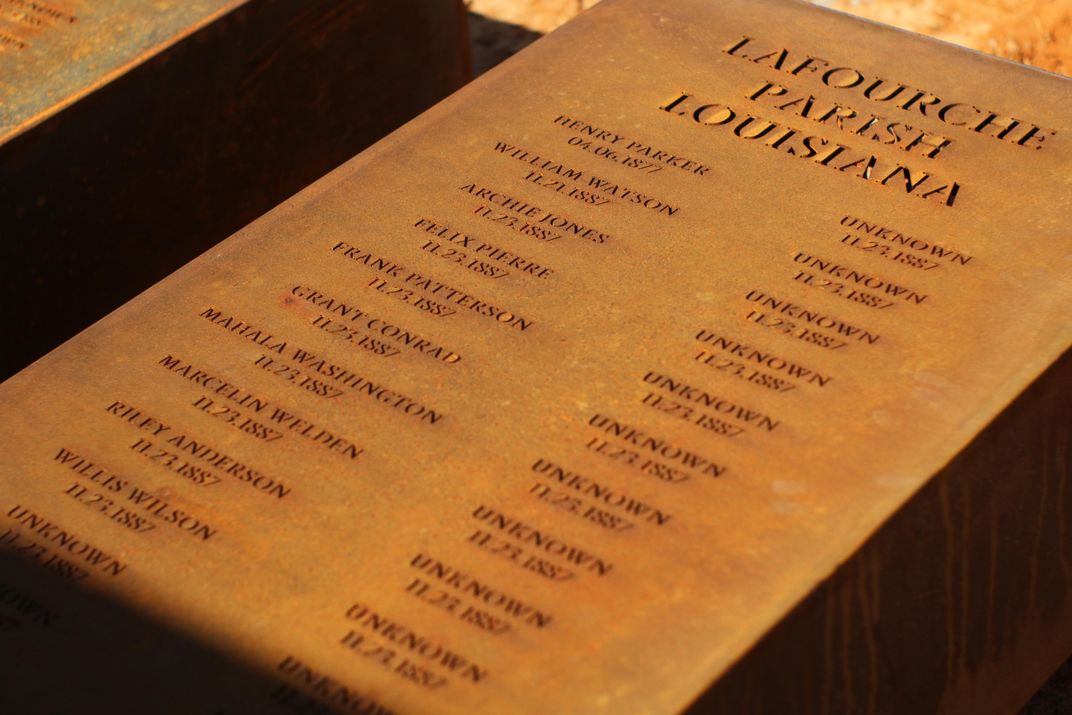 LAFOURCHE
PARISH
LOUISIANA
HENRY PARKER
04.06.1877
WILLIAM WATSON
11.21.1887
ARCHIE JONES
11.23.1887
FELIX PIERRE
11.23.1887
FRANK PATTERSON
11.23.1887
GRANT CONRAD
11.23.1887
MAHALA WASHINGTON
11.23.1887
MARCELIN WELDEN
11.23.1887
RILEY ANDERSON
11.23.1887
WILLIS WILSON
11.23.1887
UNKNOWN
11.23.1887
UNKNOWN
11.23.1887
UNKNOWN
11.23.1887
UNKNOWN
11.23.1887
UNKNOWN
11.23.1887
UNKNOWN
11.23.1887
UNKNOWN
11.23.1887
UNKNOWN
11.23.1887
UNKNOWN
11.23.1887
UNKNOWN
11.23.1887
UNKNOWN
11.23.1887
UNKNOWN